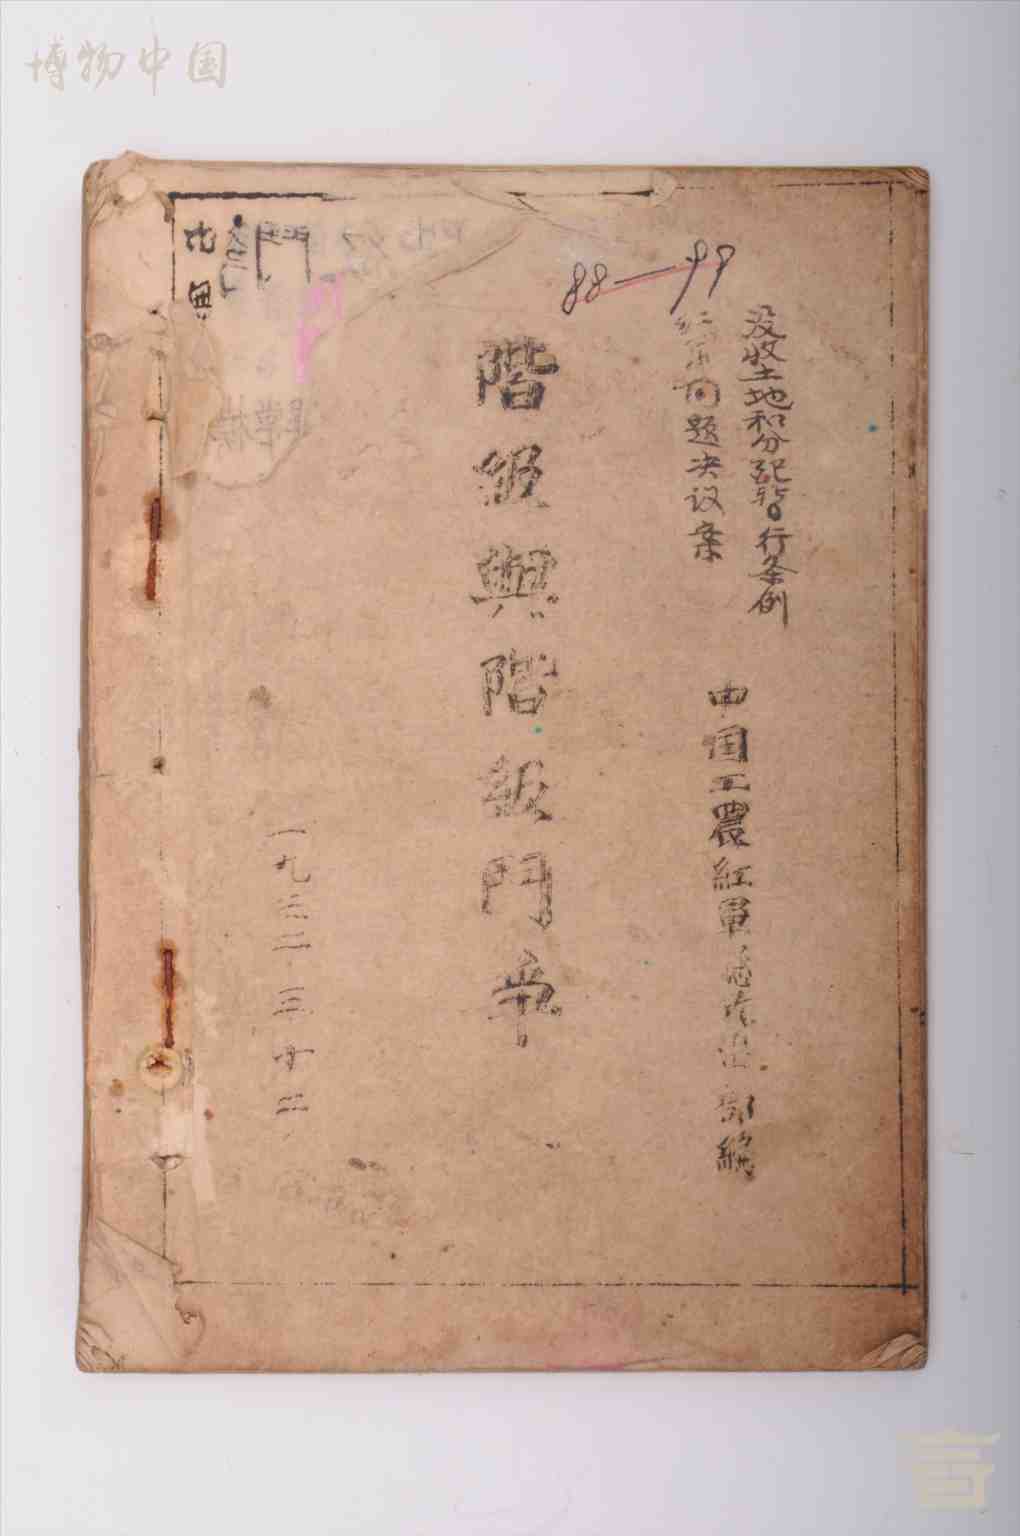 博物中国
88—99
没收土地和分配暂行条例
问题决议案
中国工農紅軍 部編
階級與階級鬥爭
一九三二·三·十二